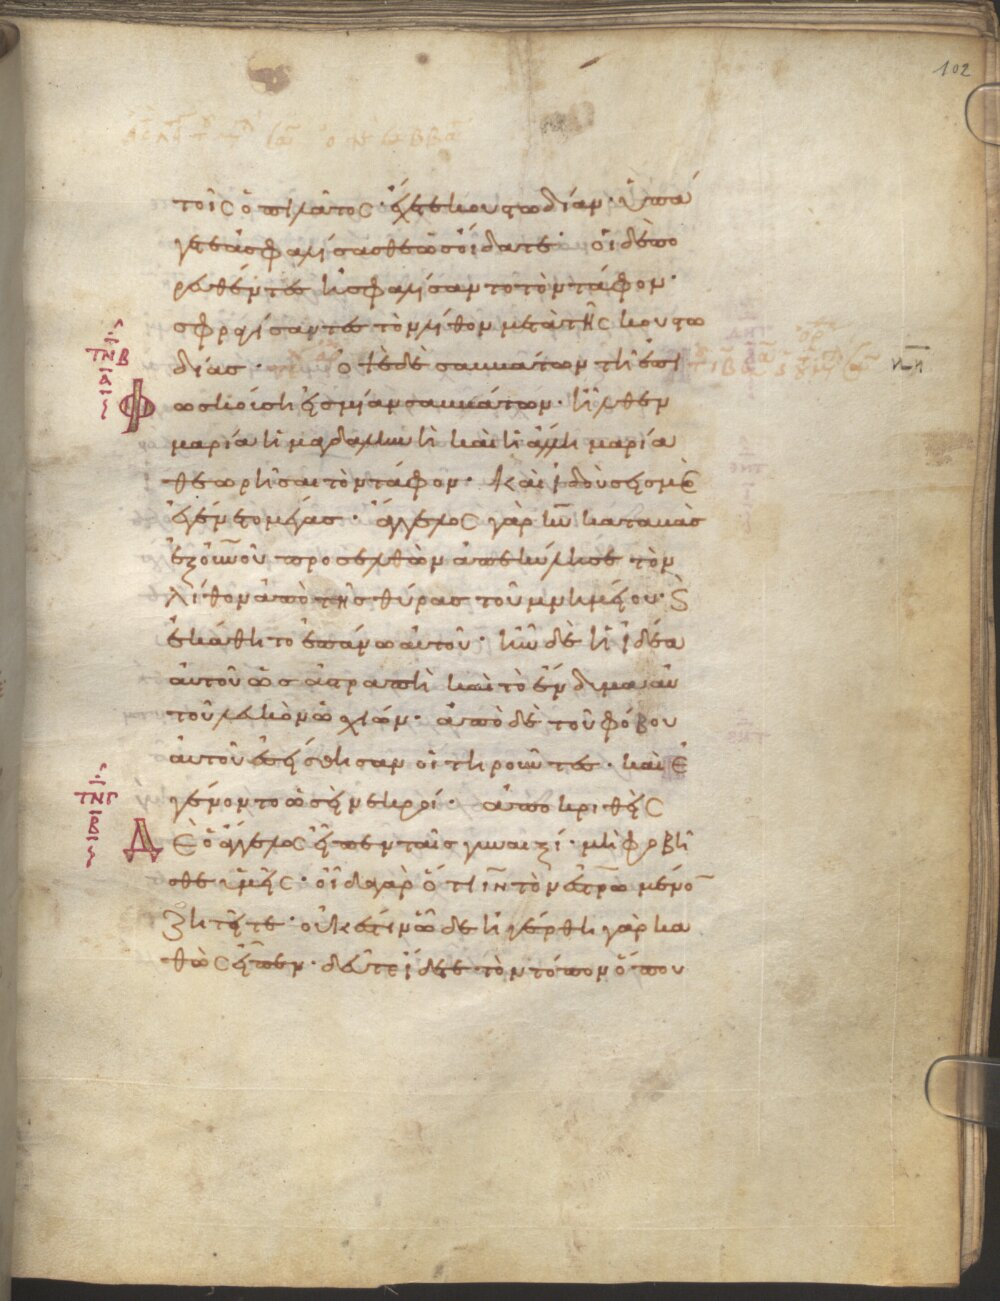 102
τοῖς ὁ πιλάτος· ἔχετε κουστωδίαν· ὑπά
γετε ἀσφαλίσασθε ὡς οἴδατε· οἱ δὲ πο
ρευθέντες ἠσφαλίσαντο τὸν τάφον·
σφραγίσαντες τὸν λίθον μετὰ τῆς κουστω
δίας· ὀψὲ δὲ σαββάτων τῆ ἐπι
φωσκούση εἰς μίαν σαββάτων· ἦλθεν
μαρία ἡ μαγδαληνὴ καὶ ἡ ἄλλη μαρία
θεωρῆσαι τὸν τάφον· καὶ ἰδοὺ σεισμὸς
ἐγένετο μέγας· ἄγγελος γὰρ κ̅υ̅ καταβὰς
ἐξ ο̅υ̅ν̅ο̅υ̅ προσελθὼν ἀπεκύλισε τὸν
λίθον ἀπὸ τῆς θύρας τοῦ μνημείου· ϗ
ἐκάθητο ἐπάνω αὐτοῦ· ἦν δὲ ἡ ἰδέα
αὐτοῦ ὡς ἀστραπὴ καὶ τὸ ἔνδυμα αὐ
τοῦ λευκὸν ὡς χιών· ἀπὸ δὲ τοῦ φόβου
αὐτοῦ ἐσείσθησαν οἱ τηροῦντες· καὶ ἐ
γένοντο ὡσεὶ νεκροί· ἀποκριθεὶς
Δὲ ὁ ἄγγελος εἶπεν ταῖς γυναιξί· μὴ φοβεῖ
σθε ὑμεῖς· οἶδα γὰρ ὅτι ι̅ν̅ τὸν ἐσταυρωμένον
ζητεῖτε· οὐκ ἔστιν ὧδε ἠγέρθη γὰρ κα
θὼς εἶπεν· δεῦτε ἴδετε τὸν τόπον ὅπου
τ̅ν̅β̅
α̅
τ̅ν̅γ̅
β̅